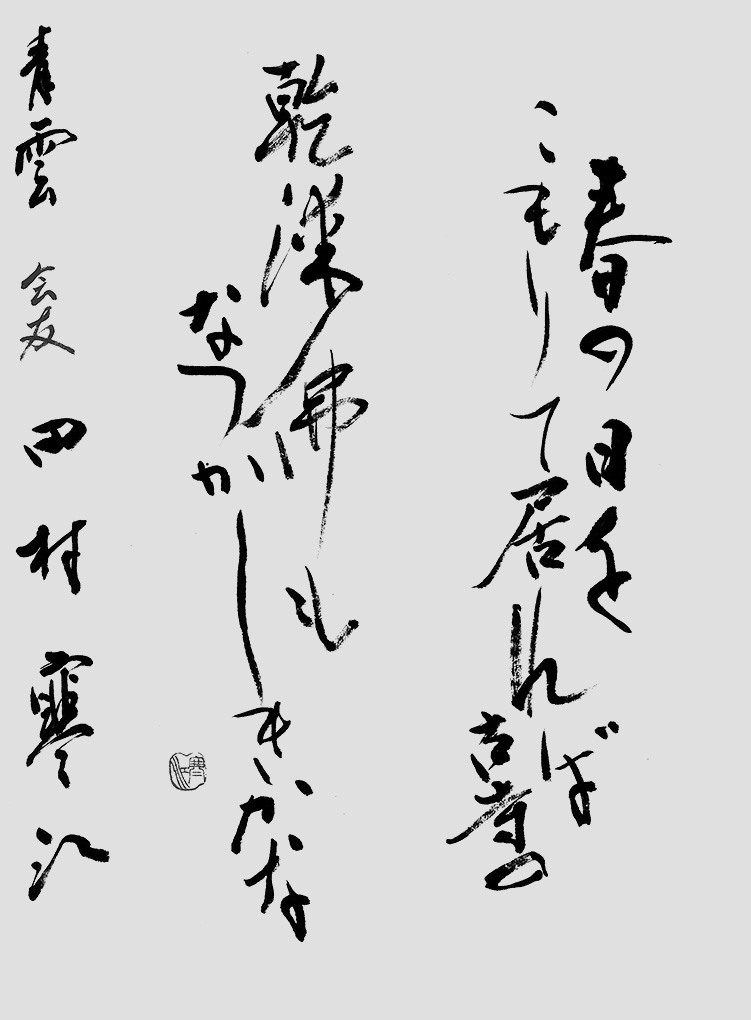 春の日を
こもりて居れば
古寺の
乾漆佛も
なつかしきかな
青雲 会友 田村寒江
寒江